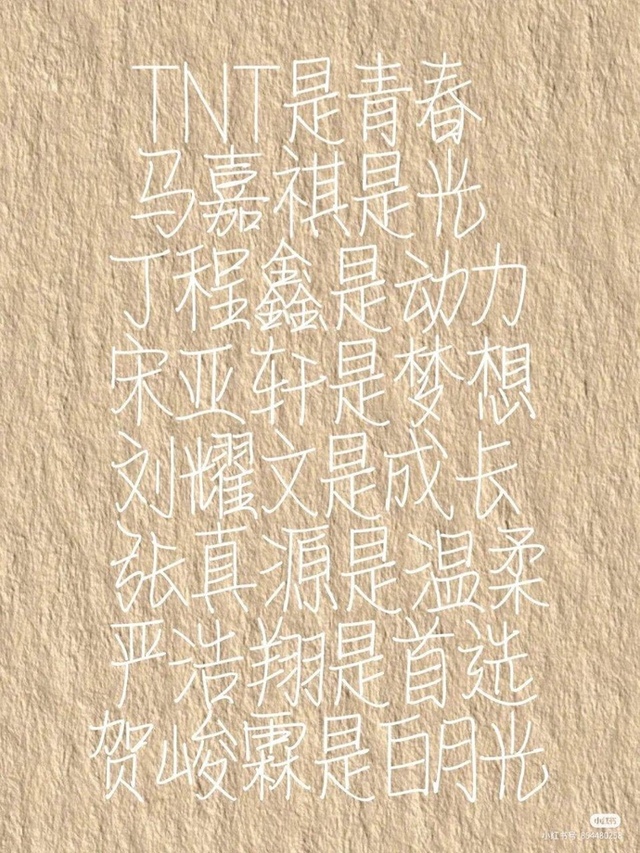 TNT是青春
马嘉祺是光
丁程鑫是动力
宋亚轩是梦想
刘耀文是成长
张真源是温柔
严浩翔是首选
贺峻霖是白月光
小红书